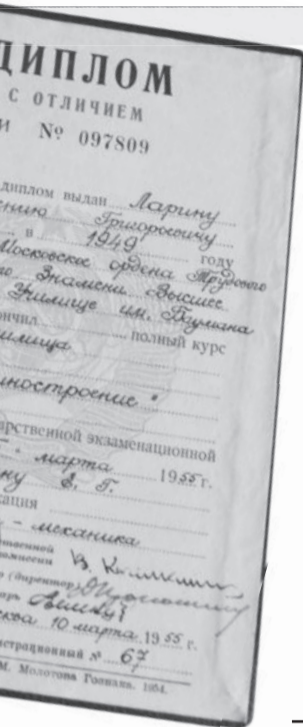 ДИПЛОМ
С ОТЛИЧИЕМ
И № 097809
диплом выдан Ларину
ению Григорьевичу
в 1949 году
Московское ордена Трудового
го Знамени Высшее
Училище им. Баумана
ончил полный курс
илища
иностроение"
арственной экзаменационной
марта 1955 г.
ну Е. Г.
кация
- механика
(директор)
10 марта 1955 г.
истрационный № 67
М. Молотова Гознака. 1954.